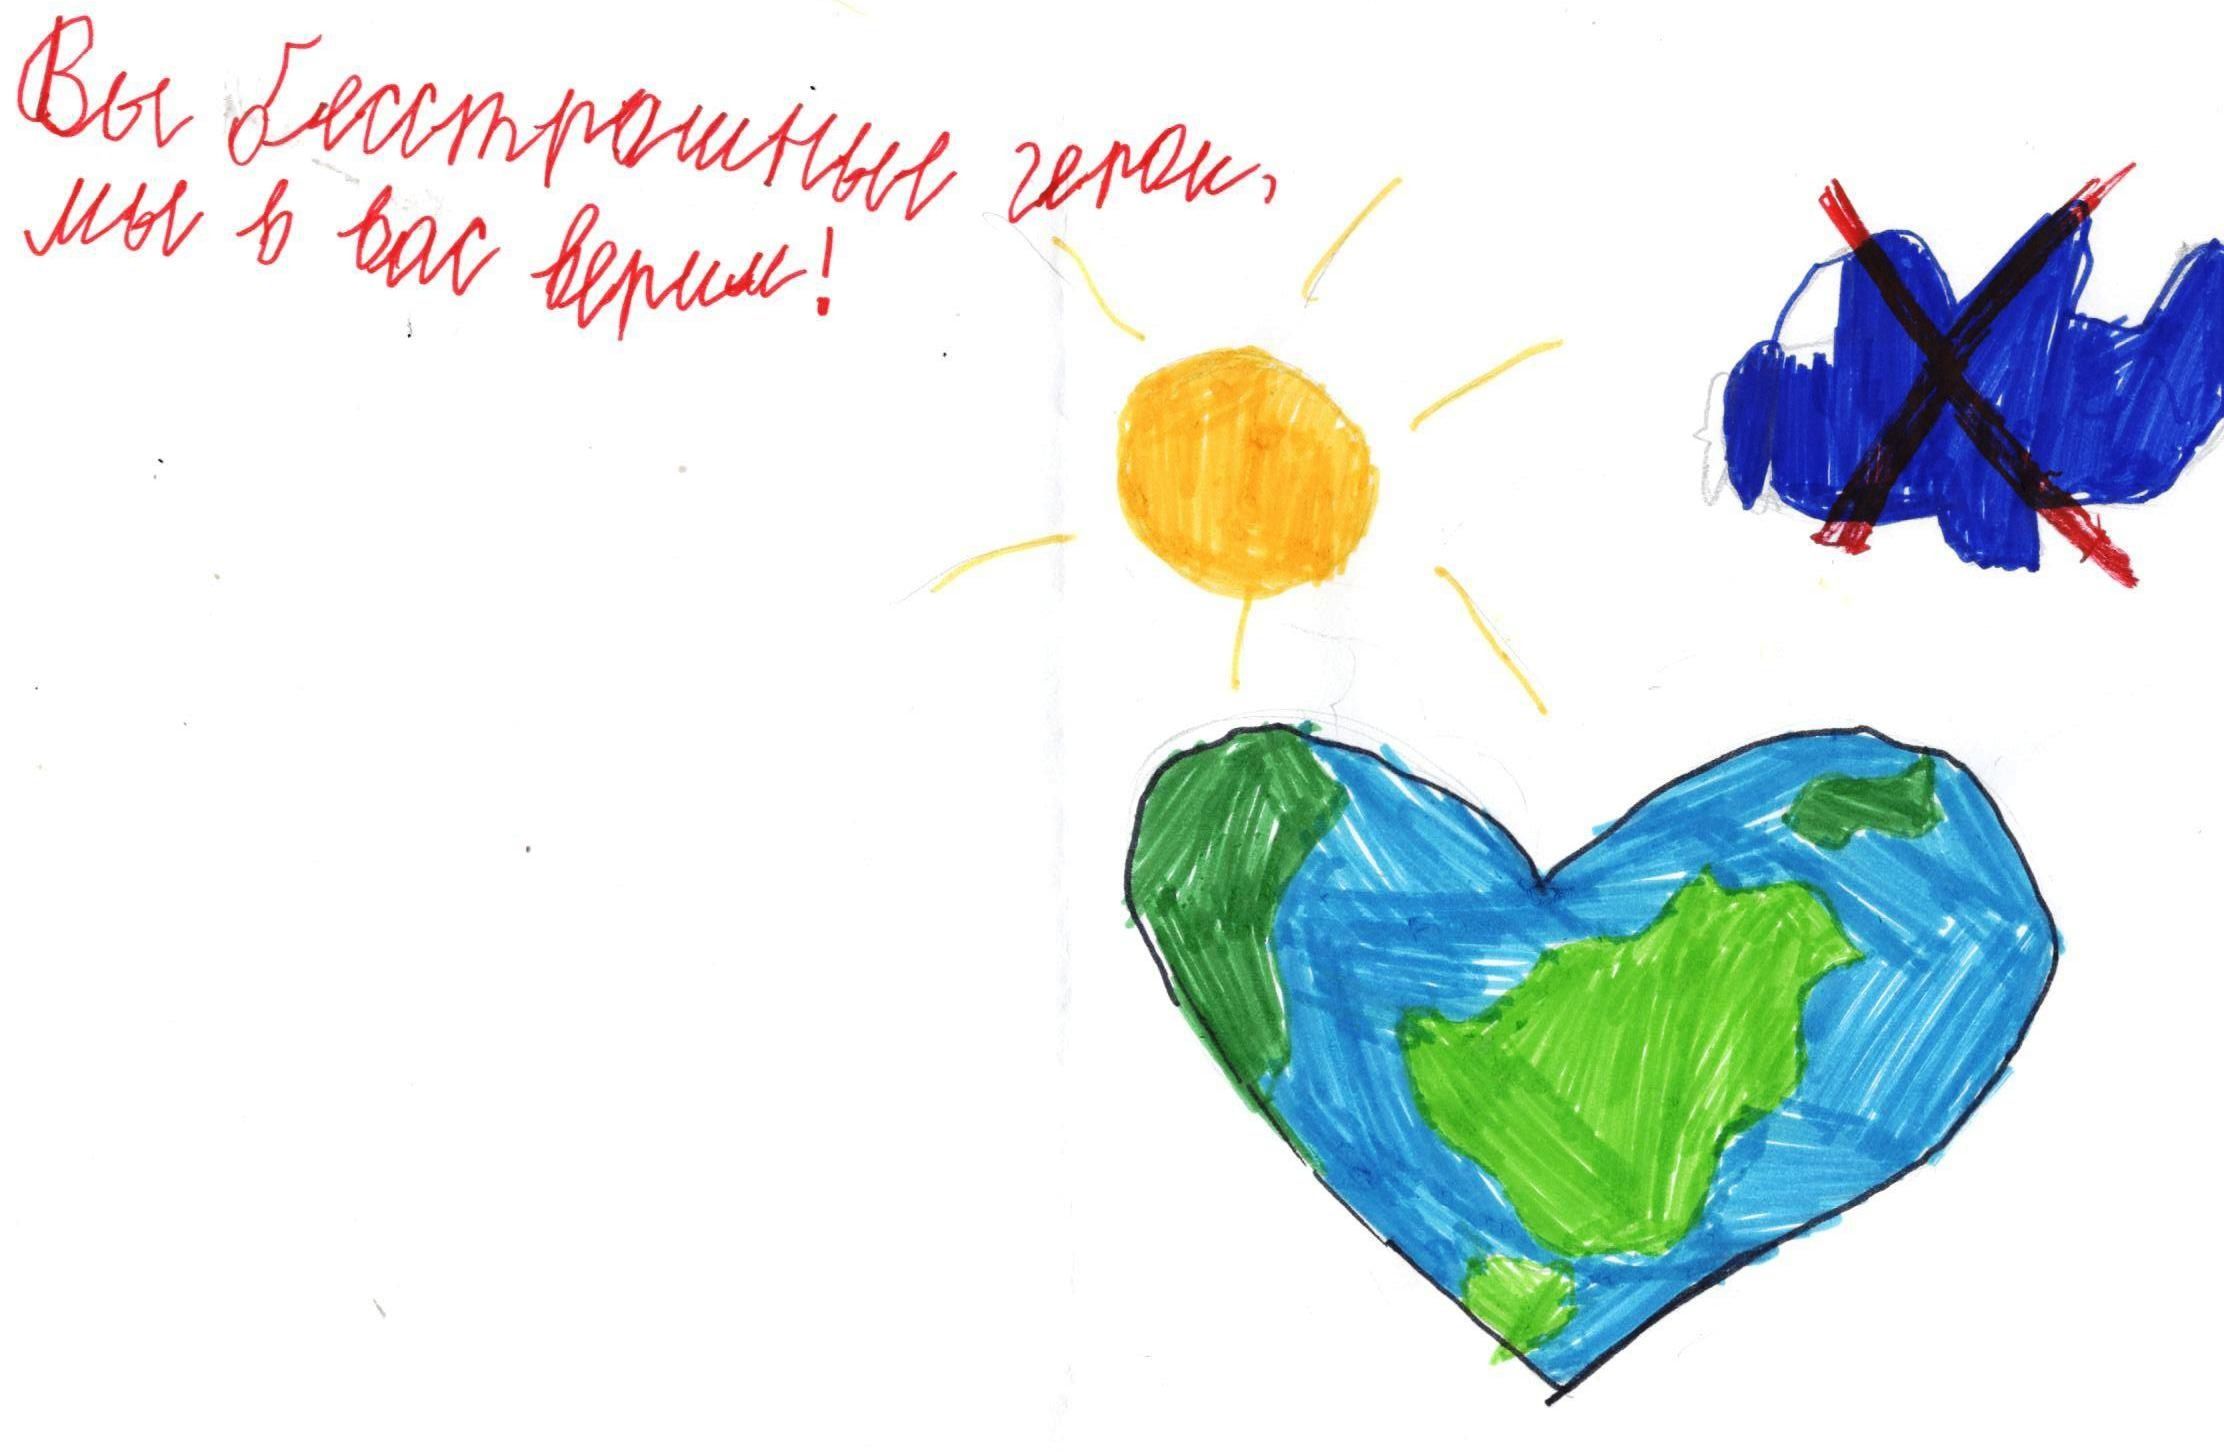 Вы бесстрашные герои,
мы в вас верим!